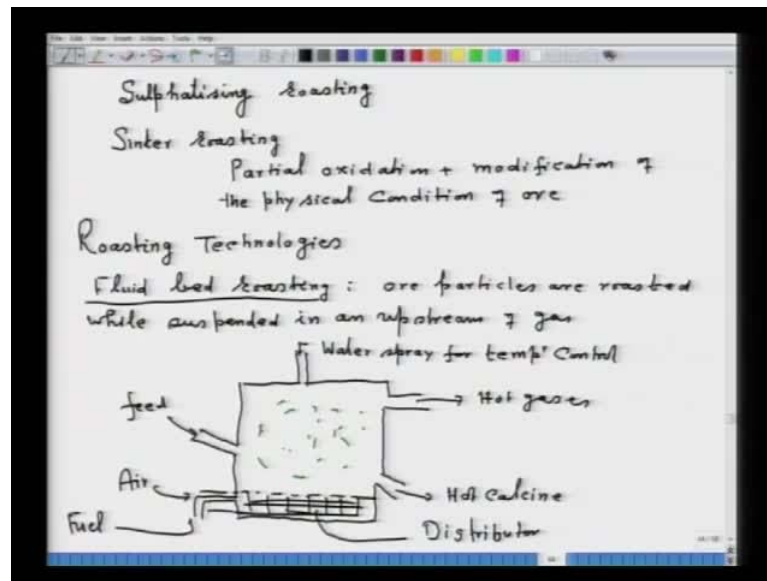 File Edit View Insert Actions Tools Help
Sulphatising roasting
Sinter roasting
Partial oxidation + modification of
the physical Condition of ore
Roasting Technologies
Fluid bed roasting : ore particles are roasted
while suspended in an upstream of gas
Water spray for temp. Control
feed
Hot gases
Air
Hot Calcine
Fuel
Distributor